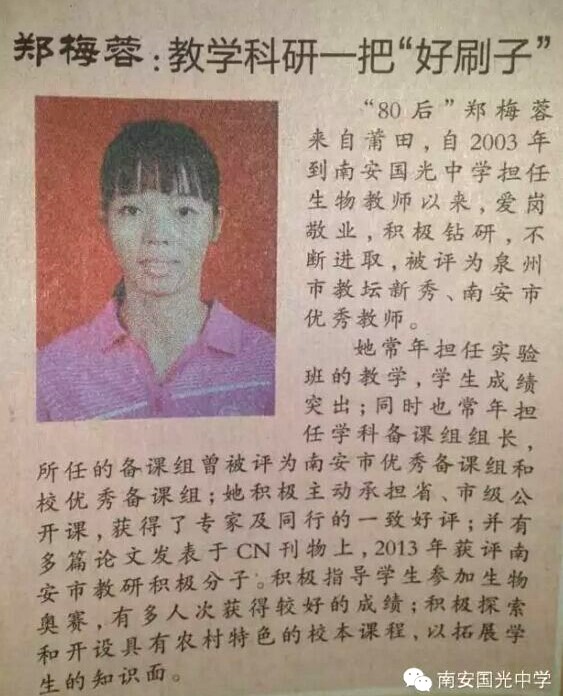 郑梅蓉:教学科研一把“好刷子”
“80后”郑梅蓉
来自莆田,自2003年
到南安国光中学担任
生物教师以来,爱岗
敬业,积极钻研,不
断进取,被评为泉州
市教坛新秀、南安市
优秀教师。
她常年担任实验
班的教学,学生成绩
突出;同时也常年担
任学科备课组组长,
所任的备课组曾被评为南安市优秀备课组和
校优秀备课组;她积极主动承担省、市级公
开课,获得了专家及同行的一致好评;并有
多篇论文发表于CN刊物上,2013年获评南
安市教研积极分子。积极指导学生参加生物
奥赛,有多人次获得较好的成绩;积极探索
和开设具有农村特色的校本课程,以拓展学
生的知识面。
南安国光中学